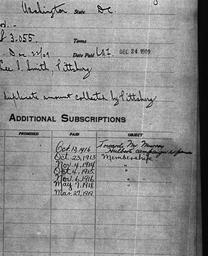 Washington State D.C.
$ 3.055 Terms
Date Paid DEC 24 1909
Lee I. Smith, Pittsburg
duplicate amount collected by Pittsburg
ADDITIONAL SUBSCRIPTIONS
PROMISED PAID OBJECT
Oct 13, 1916 Towards Mr Murray
Hulbert campaign expenses
Oct 23, 1913 Membership
Nov 4, 1914 "
Oct 4, 1915 "
Nov 6, 1916 "
May 7, 1918 "
Mar 27, 1919 "